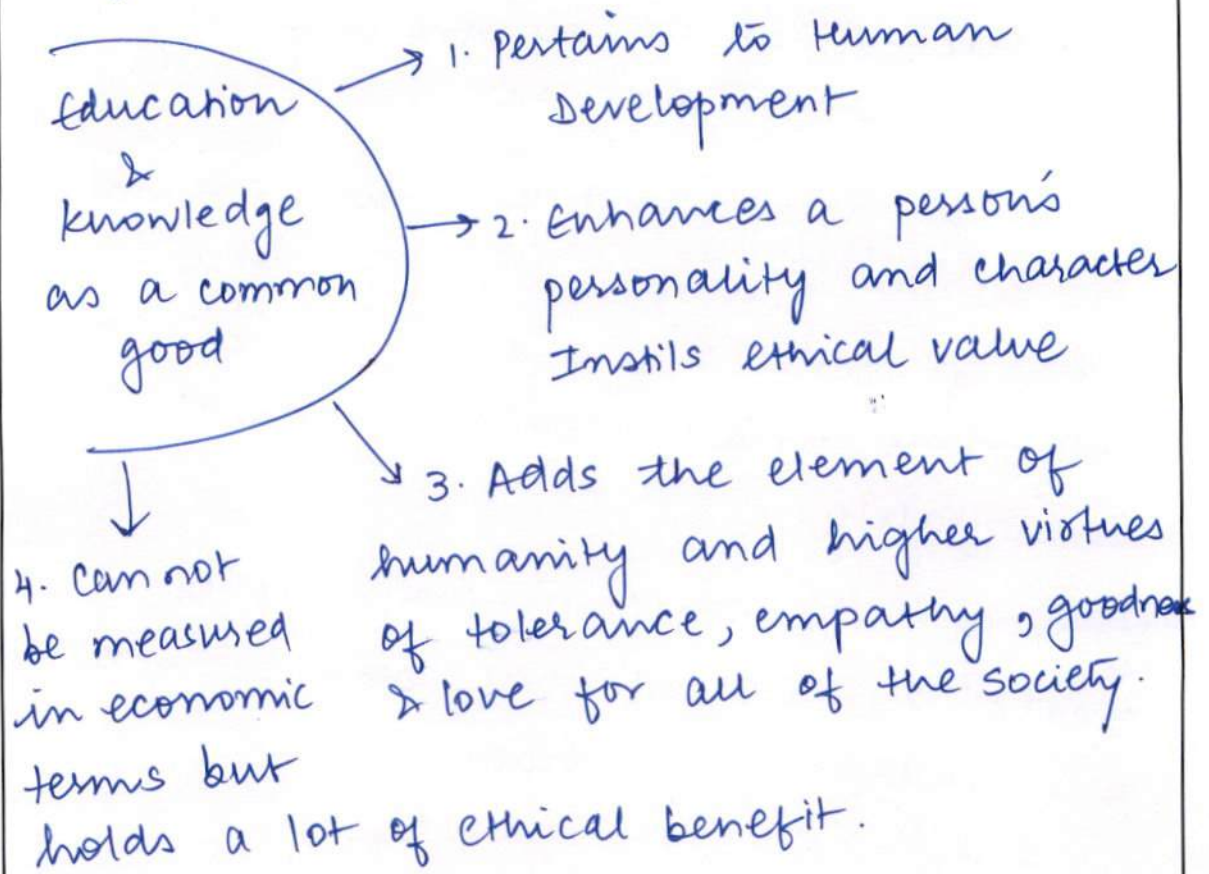 Education
&
knowledge
as a common
good
1. Pertains to Human
Development
2. Enhances a person's
personality and character
Instils ethical value
3. Adds the element of
humanity and higher virtues
of tolerance, empathy, goodness
& love for all of the society.
4. Can not
be measured
in economic
terms but
holds a lot of ethical benefit.